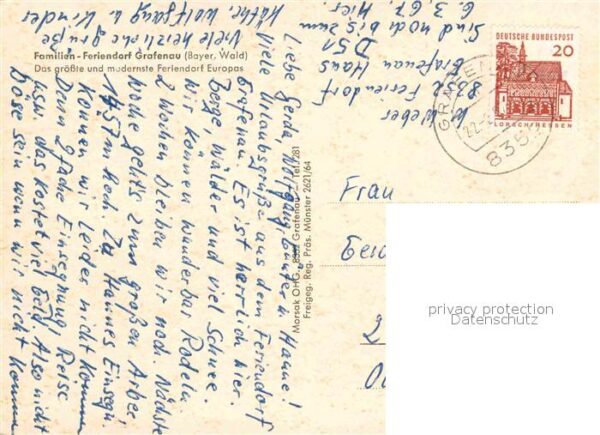 Familien-Feriendorf Grafenau (Bayer. Wald)
Das größte und modernste Feriendorf Europas
Liebe Gerda, Wolfgang, Günter u. Hanne!
Viele Urlaubsgrüße aus dem Feriendorf
Grafenau. Es ist herrlich hier.
Berge, Wälder und viel Schnee.
wir können wunderbar Rodeln
2 Wochen bleiben wir noch. Nächste
Woche gehts zum großen Arber
1457 m hoch. Zu Hannes Einsegn.
können wir leider nicht kommen
Denn 2 fache Einsegnung, Reise
usw. das kostet viel Geld. Also nicht
böse sein wenn wir nicht kommen
Viele herzliche Grüße
Käthe, Wolfgang u. Kinder
W. Weber
8352 Feriendorf
Grafenau Haus
D51
Sind noch bis zum
6.3.67. hier.
Morsak OHG, 8352 Grafenau Tel. 281
Freigeg. Reg. Präs. Münster 2621/64
DEUTSCHE BUNDESPOST
20
LORSCH/HESSEN
8352
Frau
privacy protection
Datenschutz